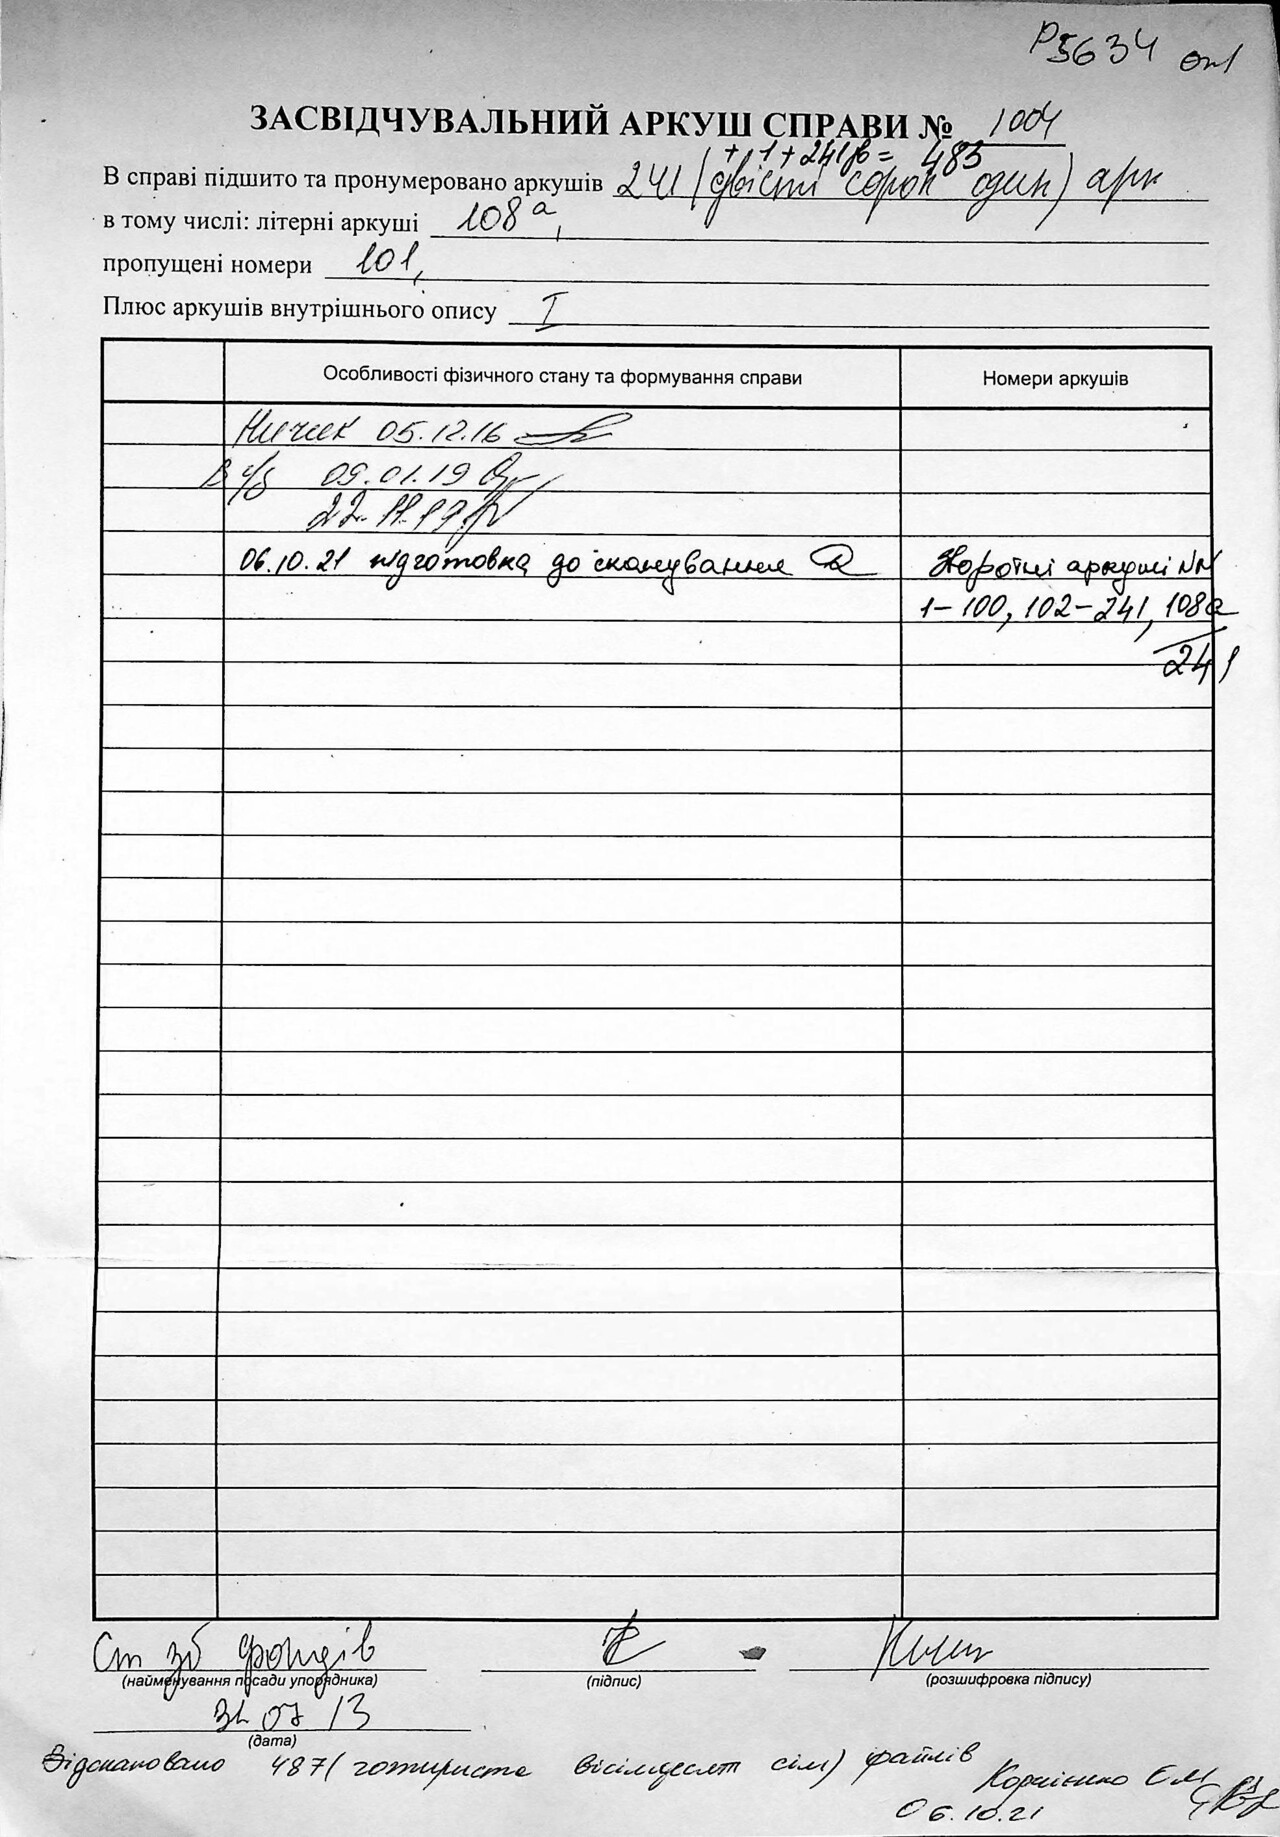 Р5634 оп1
ЗАСВІДЧУВАЛЬНИЙ АРКУШ СПРАВИ № 1004
+ 1 + 241зв = 483
В справі підшито та пронумеровано аркушів 241 (двісті сорок один) арк
в тому числі: літерні аркуші 108а,
пропущені номери 101,
Плюс аркушів внутрішнього опису I
Особливості фізичного стану та формування справи
Номери аркушів
05.12.16
09.01.19
22.11.19
06.10.21 підготовка до сканування
Зворотні аркуші №№
1–100, 102–241, 108а
241
Ст зб фондів
(найменування посади упорядника)
(підпис)
(розшифровка підпису)
31 07 13
(дата)
Відскановано 487 (чотириста вісімдесят сім) файлів
Корнієнко Є.М.
06.10.21